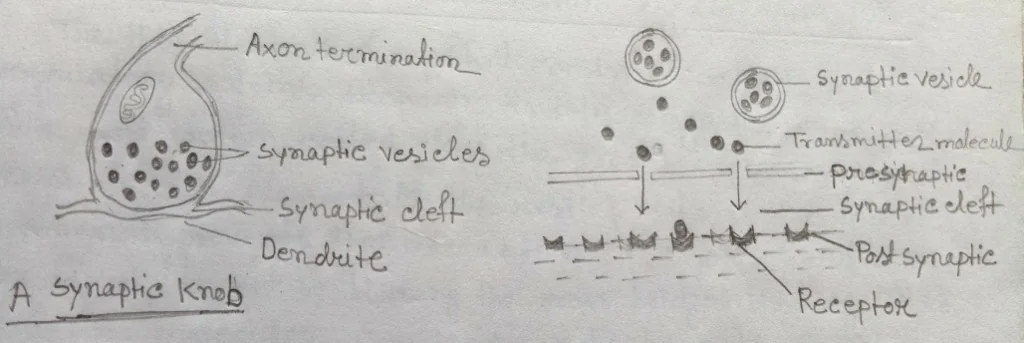 Axon termination
Synaptic vesicles
Synaptic cleft
Dendrite
A Synaptic Knob
Synaptic vesicle
Transmitter molecule
Synaptic cleft
Post synaptic
Receptor